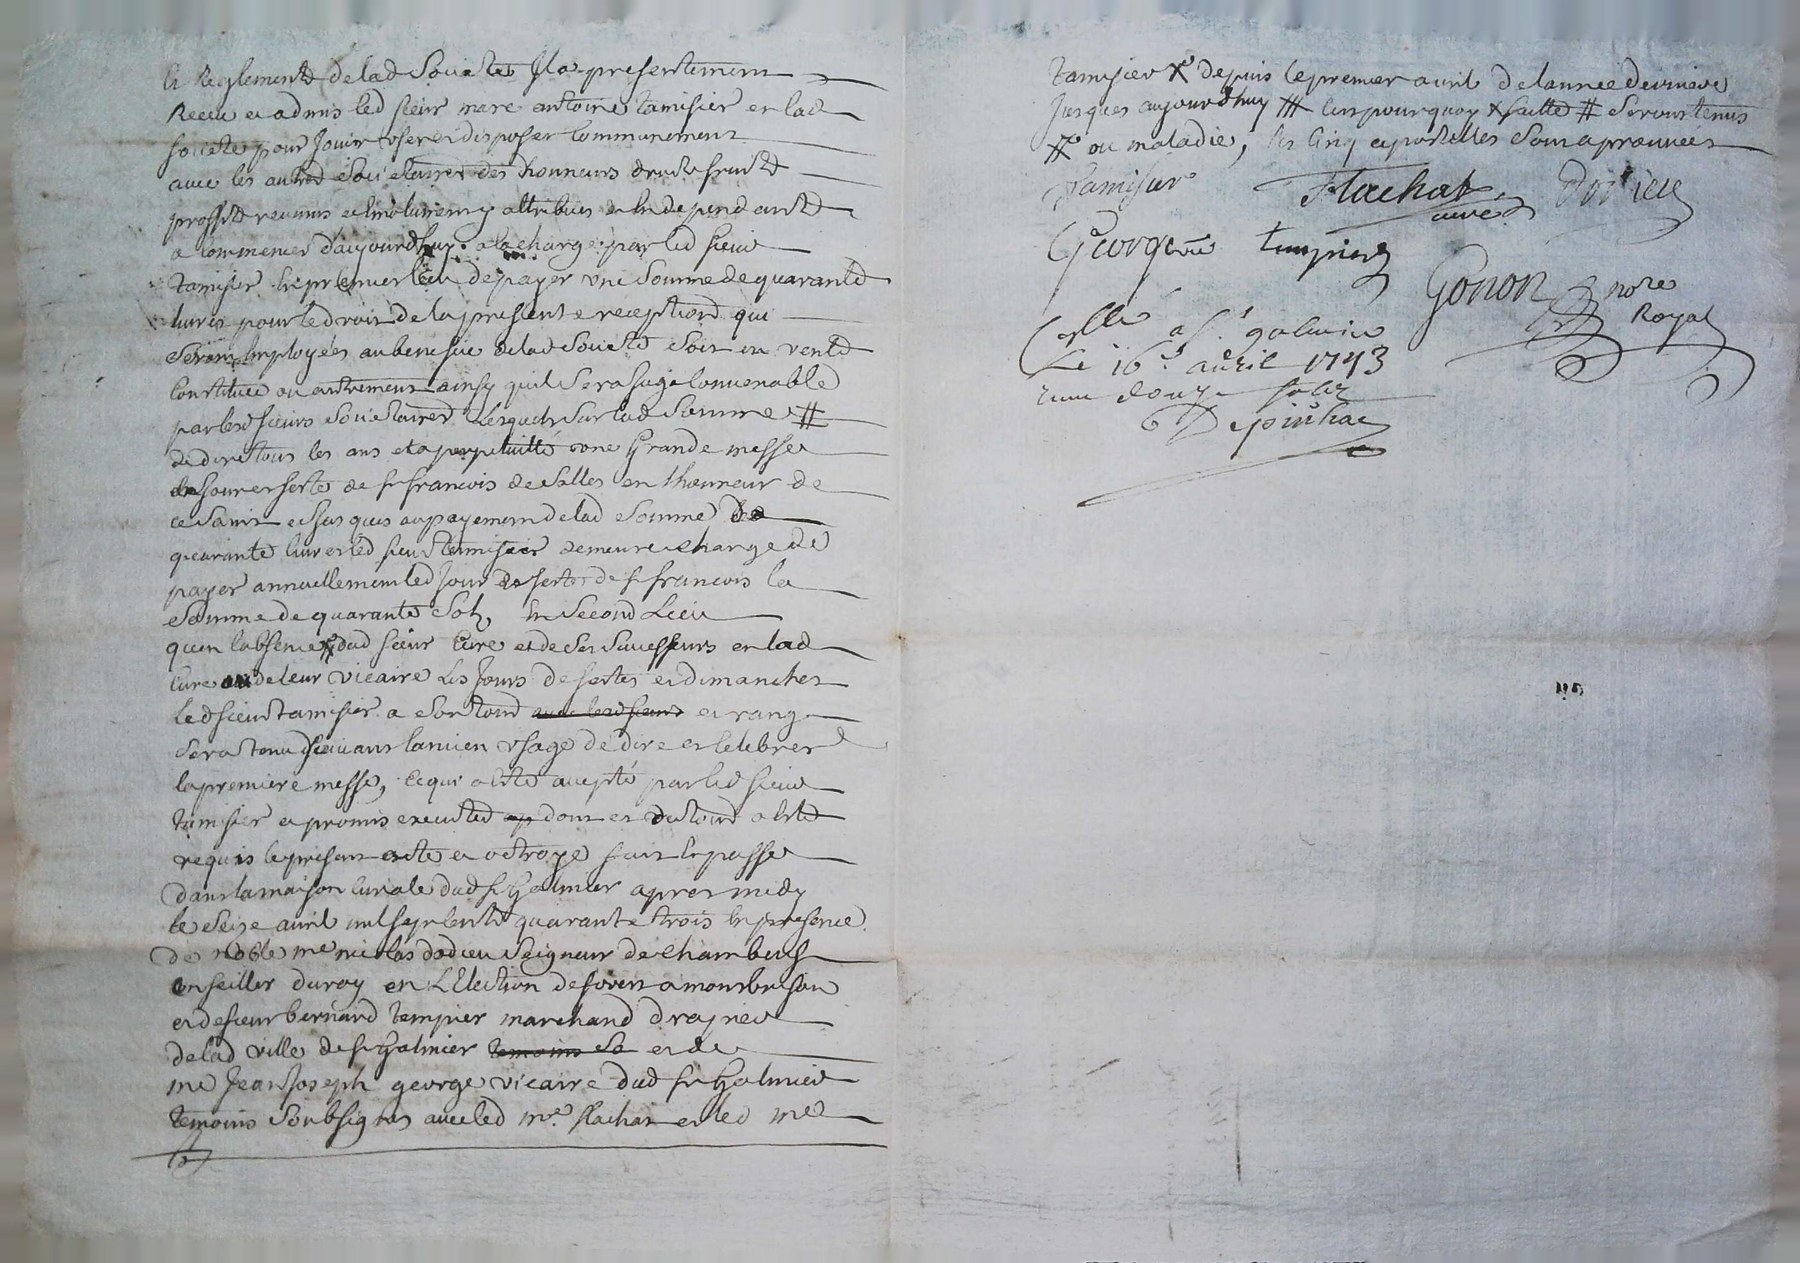 et Reglements de lad Societes Il a presentement
Receu et admis led sieur marc antoine tamisier en lad
societe pour Jouir user et disposer Communement
avec les autres Societaires des honneurs droits fruits
proffits revenus et Emolumens y attribues et En dependants
a Commencer d'aujourdhuy a la charge par led sieur
tamisier En premier lieu de payer une Somme de quarante
livres pour le droit de la presente reception qui
Seront Employées au benefice de lad Societe Soit en rente
Constituée ou autrement ainsy quil Sera Jugé Convenable
par lesd sieurs Societaires Lesquels sur lad Somme #
de dire tous les ans et a perpetuitté une Grande messe
le Jour et feste de st francois de Salles en l'honneur de
ce Saint et Jusques au payement de lad Somme de
quarante livres led sieur tamisier demeure chargé de
payer annuellement led Jour et feste de st francois la
Somme de quarante Sols, En Second Lieu
qu'en l'absence X dud sieur Curé et de Ses Successeurs en lad
Cure ou de leur Vicaire Les Jours de festes et dimanches
led sieur tamisier a Son tour et rang
Sera tenu Suivant l'ancien usage de dire et Celebrer
la premiere messe, Ce qui a été accepté par led sieur
tamisier et promis executer dont et du tout a été
requis le present acte et octroyé fait et passé
dans la maison Curiale dud st Galmier apres midy
le Seize avril mil sept Cents quarante trois En presence
de Noble me nicolas dodieu Seigneur de Chambeuf
Conseiller du roy en L'Election de forest a montbrison
et de sieur bernard tempier marchand drapier
de lad Ville de st Galmier et de
me Jean Joseph george vicaire dud st Galmier
temoins Soubsignes avec led mre flachat et led mre
tamisier X depuis le premier avril de l'année derniere
Jusques aujourdhuy ### C'est pourquoy X faitte # Seront tenus
X ou maladie, Les Cinq apostilles Sont aprouvées
Tamisier Flachat curé Dodieu
George vre tempier
Gonon nore Royal
Collé a st galmier
Le 16e avril 1743
reçu douze sols
Depinhac